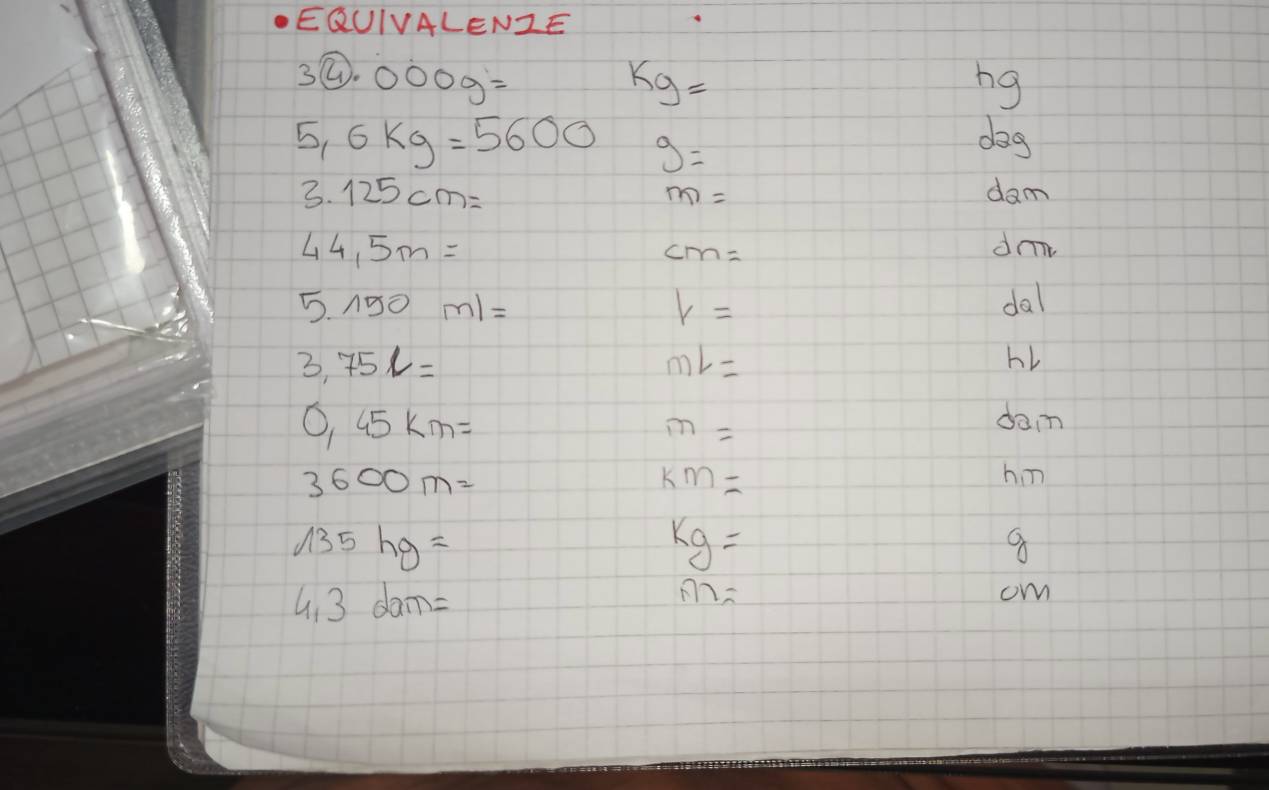 • EQUIVALENZE
34.000g= Kg= hg
5,6 Kg = 5600 g= dag
3.125 cm= m= dam
44,5m= cm= dm
5.190 ml= l= dal
3,75 l= ml= hl
0,45 Km= m= dam
3600 m= Km= hm
135 hg= Kg= g
4,3 dam= m= cm